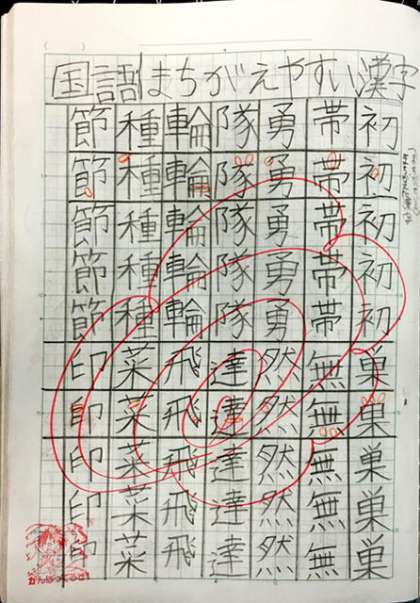 国語 まちがえやすい漢字
初初初初初巣巣巣巣巣
帯帯帯帯帯無無無無無
勇勇勇勇勇然然然然然
隊隊隊隊隊達達達達達
輪輪輪輪輪飛飛飛飛飛
種種種種種菜菜菜菜菜
節節節節節印印印印印